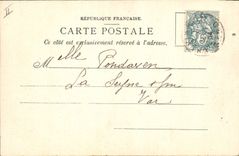 RÉPUBLIQUE FRANÇAISE.
CARTE POSTALE
Ce côté est exclusivement réservé à l'adresse.
Melle Pondaven
La Seyne s/m
Var